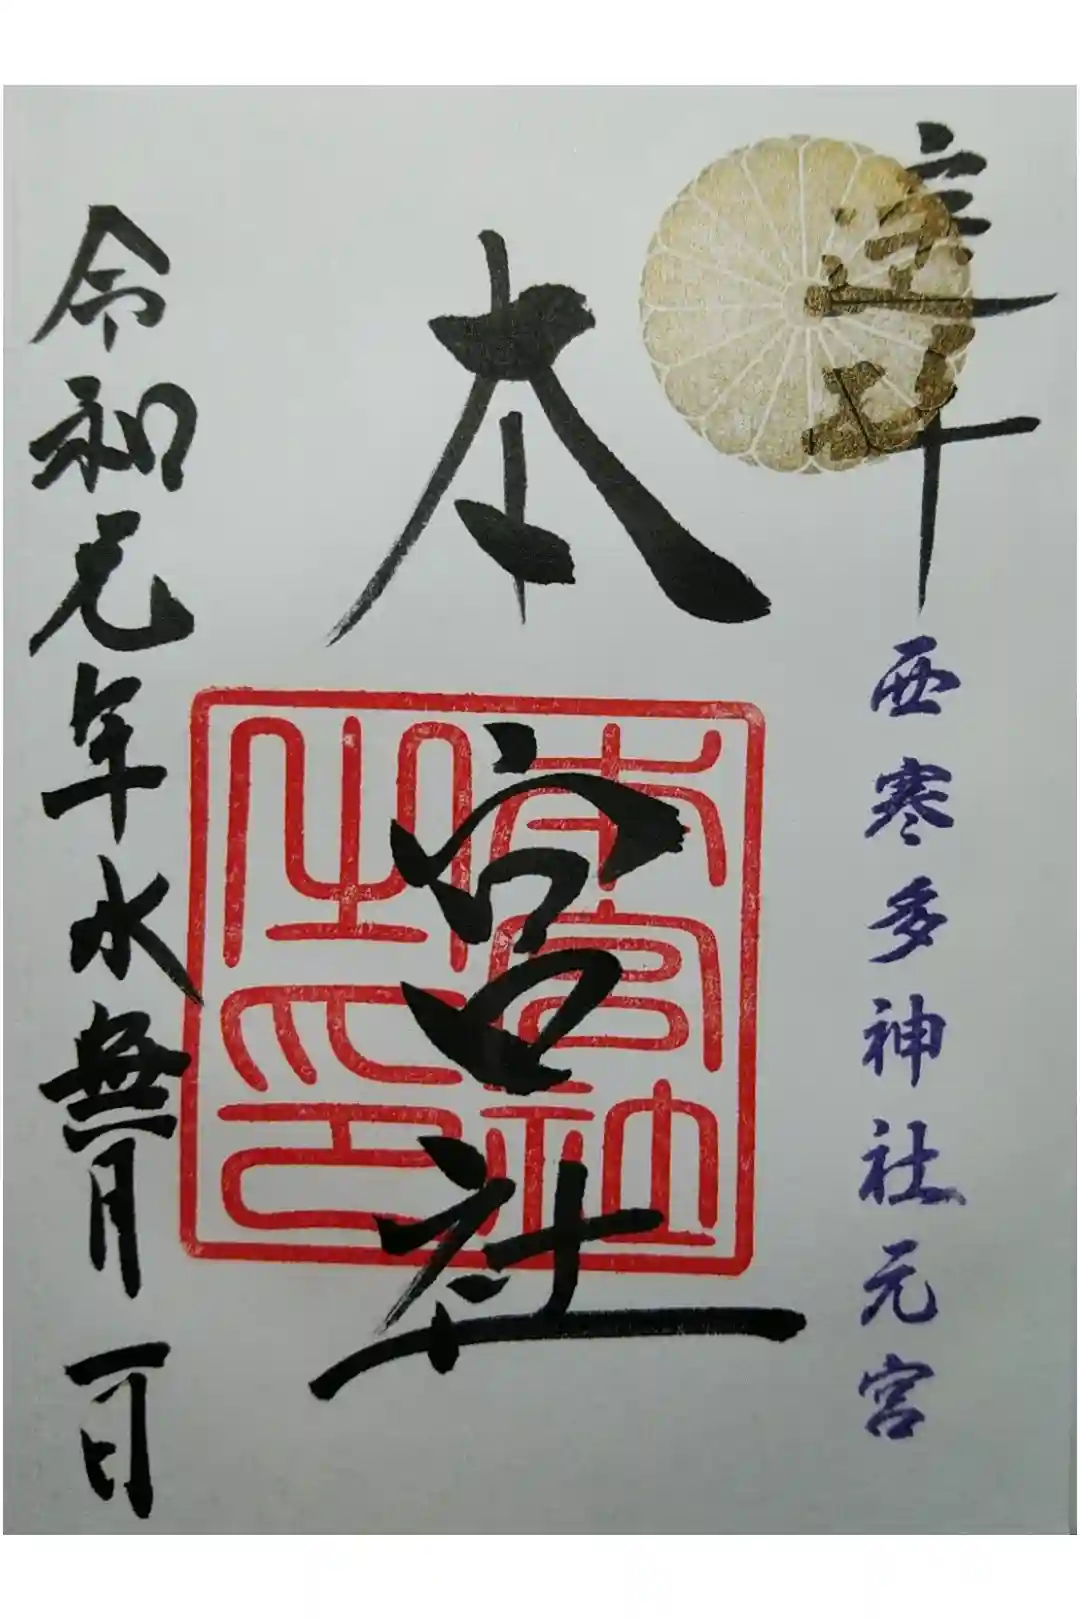 奉拝
西寒多神社元宮
本宮社
本宮社之印
令和元年水無月一日